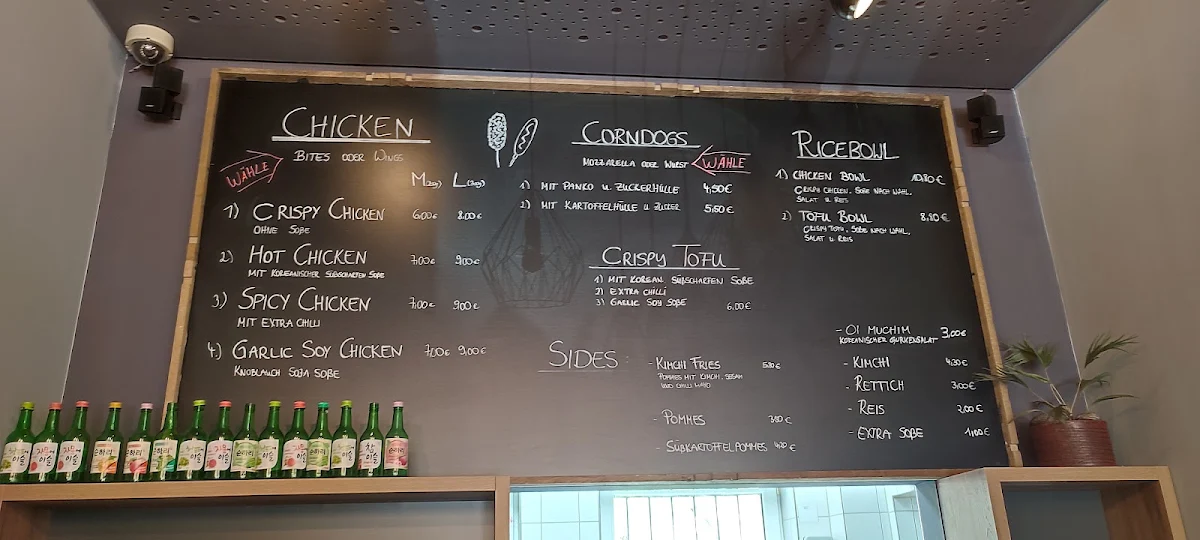 CHICKEN
BITES ODER WINGS
WÄHLE
M L
1) CRISPY CHICKEN 6.00€ 8.00€
OHNE SOßE
2) HOT CHICKEN 7.00€ 9.00€
MIT KOREANISCHER SÜßSCHARFEN SOßE
3) SPICY CHICKEN 7.00€ 9.00€
MIT EXTRA CHILLI
4) GARLIC SOY CHICKEN 7.00€ 9.00€
KNOBLAUCH SOJA SOßE
CORNDOGS
MOZZARELLA ODER WURST WÄHLE
1) MIT PANKO U. ZUCKERHÜLLE 4,50€
2) MIT KARTOFFELHÜLLE U. ZUCKER 5,50€
CRISPY TOFU
1) MIT KOREAN. SÜßSCHARFEN SOßE
2) EXTRA CHILLI
3) GARLIC SOY SOßE 6.00€
RICEBOWL
1) CHICKEN BOWL 10,80€
CRISPY CHICKEN, SOßE NACH WAHL,
SALAT U. REIS
2) TOFU BOWL 8,80€
CRISPY TOFU, SOßE NACH WAHL,
SALAT U. REIS
SIDES:
- KIMCHI FRIES
POMMES MIT KIMCHI, SESAM
UND CHILLI MAYO
- POMMES
- SÜßKARTOFFELPOMMES
- OI MUCHIM 3,00€
KOREANISCHER GURKENSALAT
- KIMCHI
- RETTICH 3,00€
- REIS 2,00€
- EXTRA SOßE 1,00€